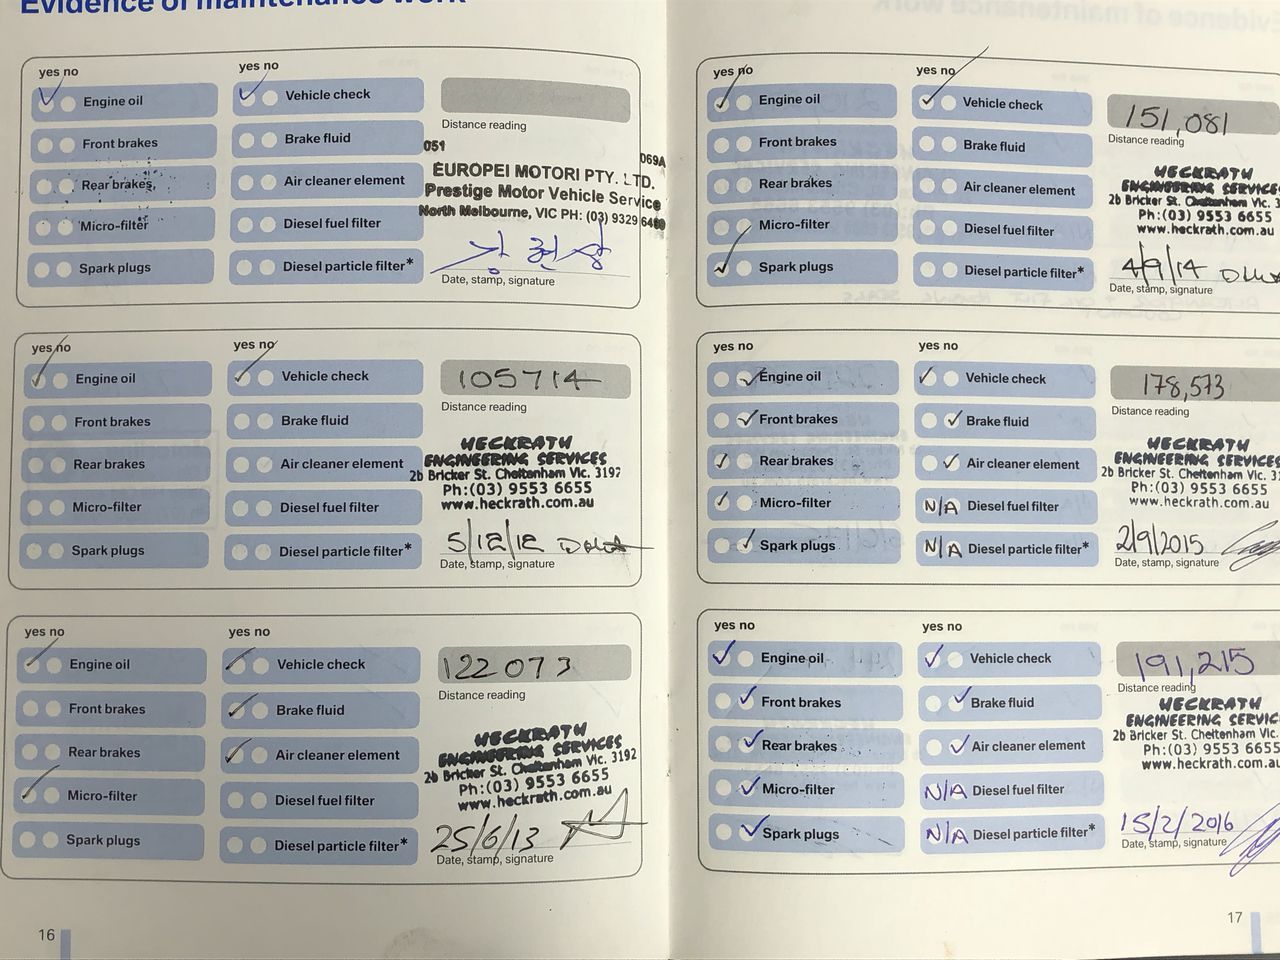 Evidence of maintenance work
yes no
yes no
Engine oil
Vehicle check
Front brakes
Brake fluid
Distance reading
Rear brakes
Air cleaner element
Micro-filter
Diesel fuel filter
Spark plugs
Diesel particle filter*
051
069A
EUROPEI MOTORI PTY. LTD.
Prestige Motor Vehicle Service
North Melbourne, VIC PH: (03) 9329 6400
Date, stamp, signature
yes no
yes no
Engine oil
Vehicle check
105714
Distance reading
Front brakes
Brake fluid
Rear brakes
Air cleaner element
Micro-filter
Diesel fuel filter
Spark plugs
Diesel particle filter*
HECKRATH
ENGINEERING SERVICES
2b Bricker St. Cheltenham Vic. 3192
Ph:(03) 9553 6655
www.heckrath.com.au
5/12/12
Date, stamp, signature
yes no
yes no
Engine oil
Vehicle check
122073
Distance reading
Front brakes
Brake fluid
Rear brakes
Air cleaner element
Micro-filter
Diesel fuel filter
Spark plugs
Diesel particle filter*
HECKRATH
ENGINEERING SERVICES
2b Bricker St. Cheltenham Vic. 3192
Ph:(03) 9553 6655
www.heckrath.com.au
25/6/13
Date, stamp, signature
16
yes no
yes no
Engine oil
Vehicle check
151,081
Distance reading
Front brakes
Brake fluid
Rear brakes
Air cleaner element
Micro-filter
Diesel fuel filter
Spark plugs
Diesel particle filter*
HECKRATH
ENGINEERING SERVICES
2b Bricker St. Cheltenham Vic. 3
Ph:(03) 9553 6655
www.heckrath.com.au
4/9/14
Date, stamp, signature
yes no
yes no
Engine oil
Vehicle check
178,573
Distance reading
Front brakes
Brake fluid
Rear brakes
Air cleaner element
Micro-filter
N/A Diesel fuel filter
Spark plugs
N/A Diesel particle filter*
HECKRATH
ENGINEERING SERVICES
2b Bricker St. Cheltenham Vic. 31
Ph:(03) 9553 6655
www.heckrath.com.au
2/9/2015
Date, stamp, signature
yes no
yes no
Engine oil
Vehicle check
191,215
Distance reading
Front brakes
Brake fluid
Rear brakes
Air cleaner element
Micro-filter
N/A Diesel fuel filter
Spark plugs
N/A Diesel particle filter*
HECKRATH
ENGINEERING SERVIC
2b Bricker St. Cheltenham Vic.
Ph:(03) 9553 6655
www.heckrath.com.au
15/2/2016
Date, stamp, signature
17